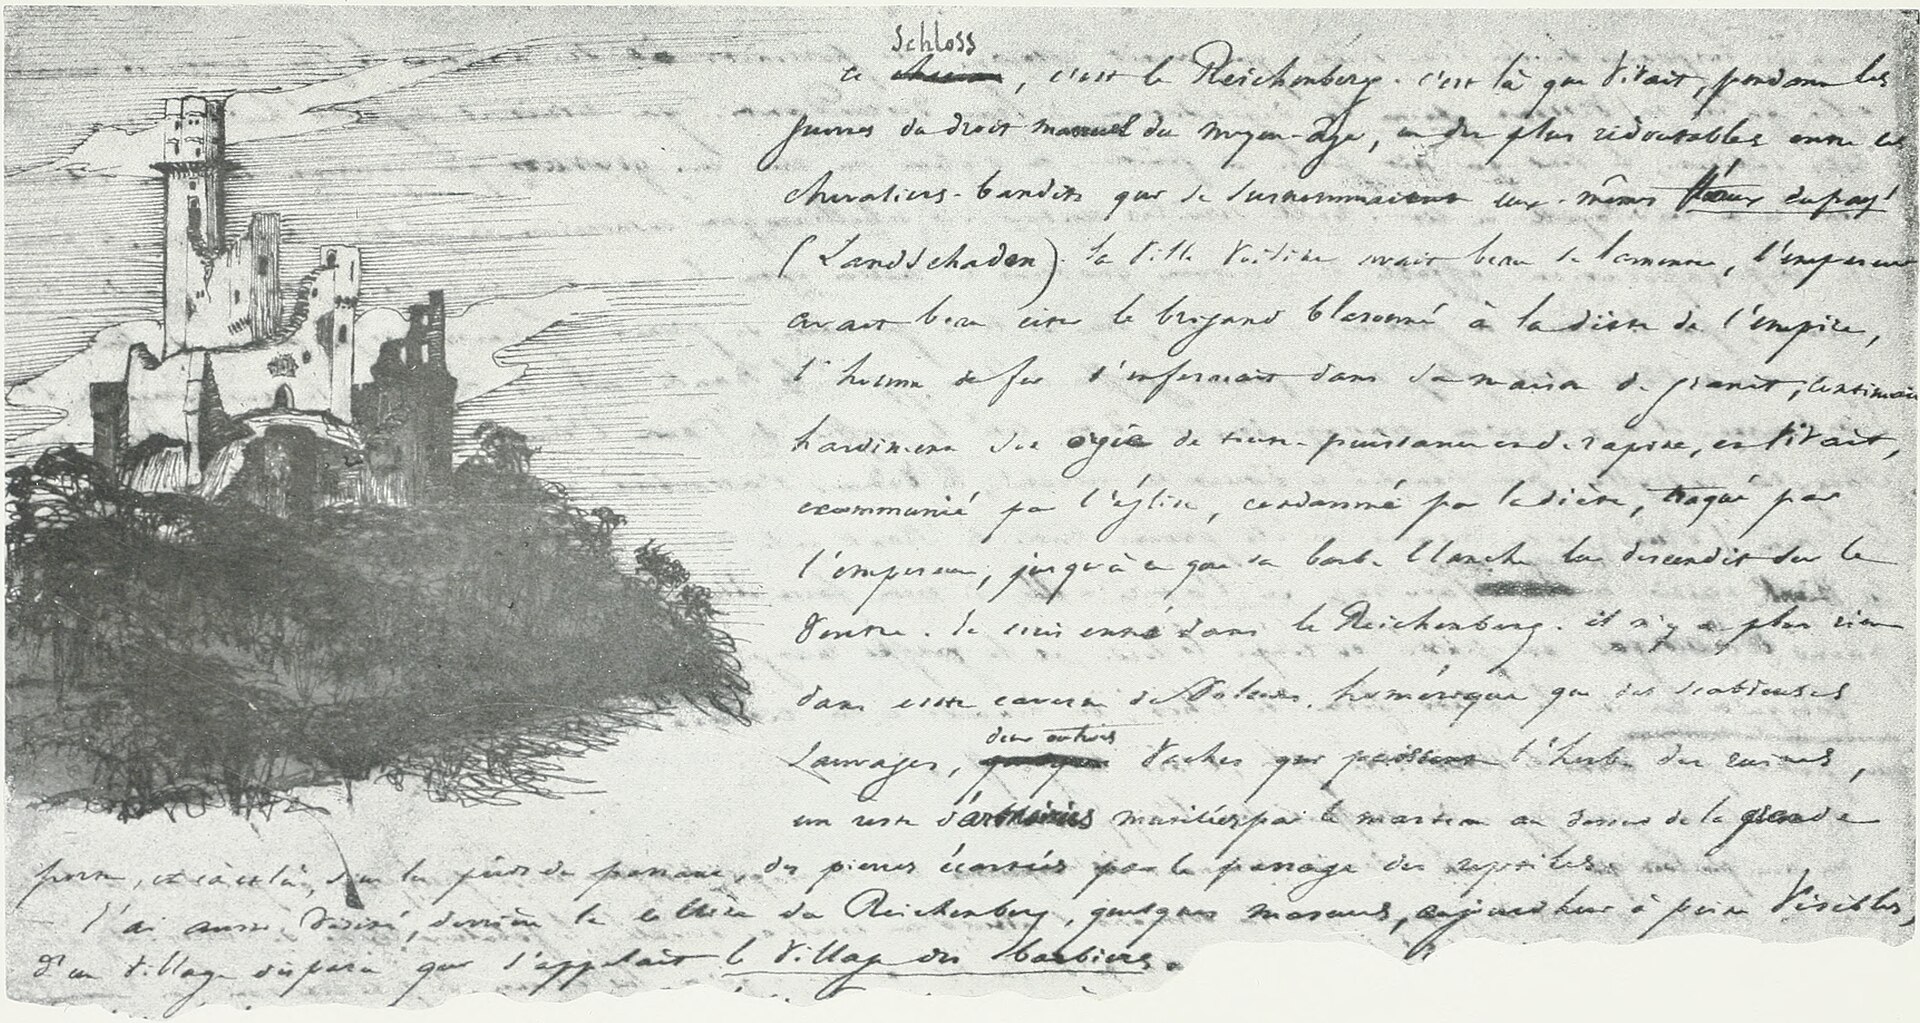 schloss
ce, c'est le Reichenberg. c'est là que vivait, pendant les
guerres du droit manuel du moyen-âge, un des plus redoutables entre ces
chevaliers-bandits qui se surnommaient eux-mêmes fléaux du pays
(Landschaden). la ville voisine avait beau se lamenter, l'empereur
avait beau citer le brigand blasonné à la diète de l'empire,
l'homme de fer s'enfermait dans sa maison de granit, continuait
hardiment son orgie de toute-puissance et de rapine, et vivait,
excommunié par l'église, condamné par la diète, traqué par
l'empereur, jusqu'à ce que sa barbe blanche lui descendit sur le
ventre. Je suis entré dans le Reichenberg. il n'y a plus rien
dans cette caverne de voleurs homérique que des scabieuses
deux ou trois
sauvages, vaches qui paissent l'herbe des ruines,
un reste d'armoiries mutilées par le marteau au dessus de la grande
porte, et çà et là, sous les pieds du passant, des pierres écartées par le passage des reptiles.
J'ai aussi visité, derrière la colline du Reichenberg, quelques masures, aujourd'hui à peine visibles,
d'un village disparu qui s'appelait le village des barbiers.